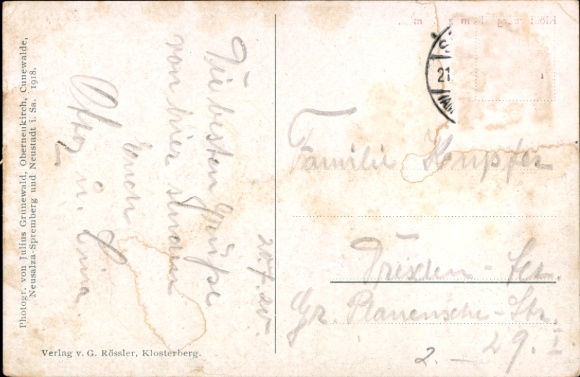 Photogr. von Julius Grunewald, Oberneukirch, Cunewalde,
Neusalza-Spremberg und Neustadt i. Sa. 1918.
Die besten Grüße
von hier senden
Euch
Otto u. Lina
20.7.20.
Verlag v. G. Rössler, Klosterberg.
21.
Familie Kupfer
Dresden
Gr. Plauensche-Str.
29. I
2.